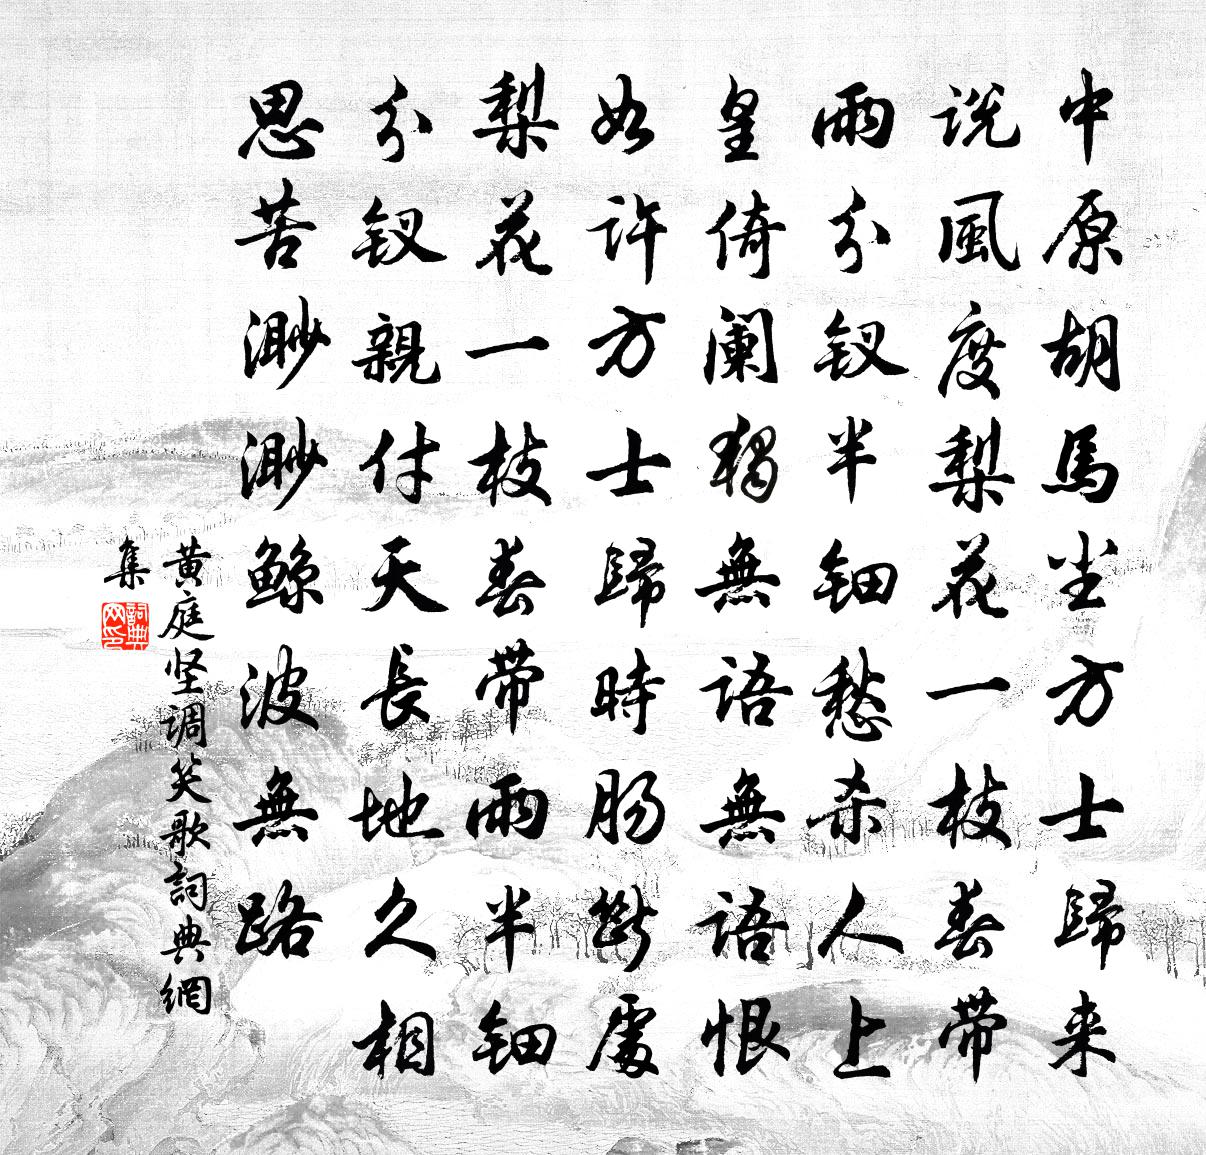 中原胡馬尘方士歸来
说風度梨花一枝春带
雨分钗半钿愁杀人上
皇倚阑獨無語無語恨
如许方士歸時肠斷處
梨花一枝春带雨半钿
分钗親付天長地久相
思苦渺渺鲸波無路
黄庭坚調笑歌詞典網
集
詞典
网印